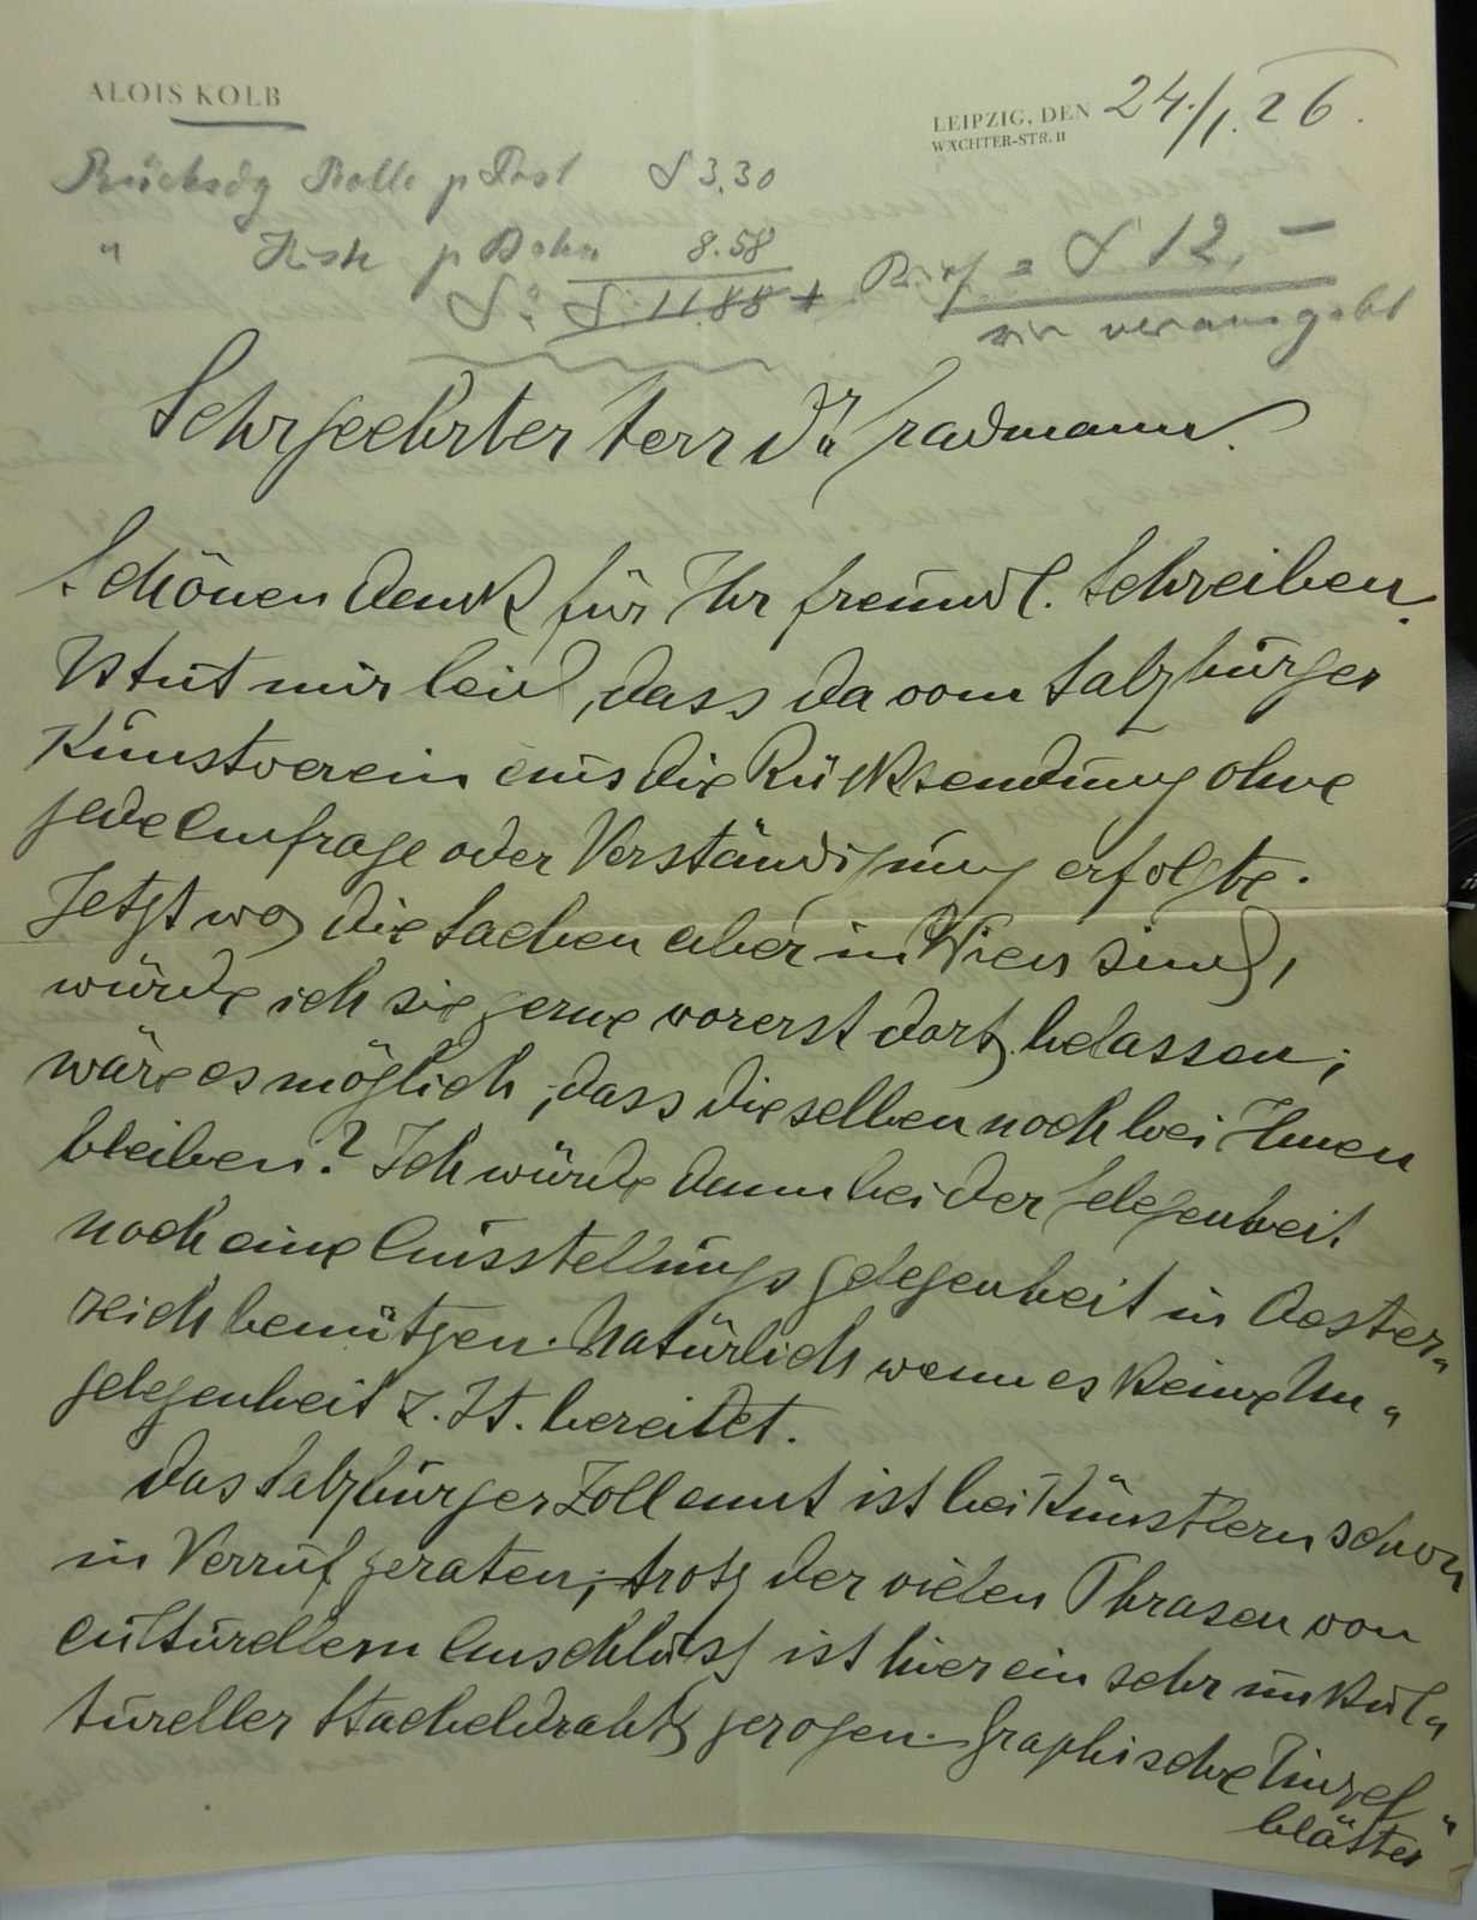 ALOIS KOLB
LEIPZIG, DEN 24./1. 26.
WÄCHTER-STR. 11
Rücksdg Rolle p Post S 3.30
" Kiste p Bahn 8.58
S: S. 11.88 + = S 12,—
wir verausgabt
Sehrgeehrter Herr Dr. Gradmann.
Schönen Dank für Ihr freundl. Schreiben.
Es tut mir leid, dass da vom Salzburger
Kunstverein aus die Rücksendung ohne
jede Anfrage oder Verständigung erfolgte.
Jetzt wo die Sachen aber in Wien sind,
würde ich sie gerne vorerst dort belassen;
wäre es möglich, dass dieselben noch bei Ihnen
bleiben? Ich würde dann bei der Gelegenheit
noch eine Ausstellungsgelegenheit in Oester„
reich benützen. Natürlich wenn es keine Un„
gelegenheit z. Zt. bereitet.
Das Salzburger Zollamt ist bei Künstlern schon
in Verruf geraten; trotz der vielen Phrasen von
culturellem Anschluss ist hier ein sehr unkul„
tureller Stacheldraht gezogen. Graphische Einzel„
blätter